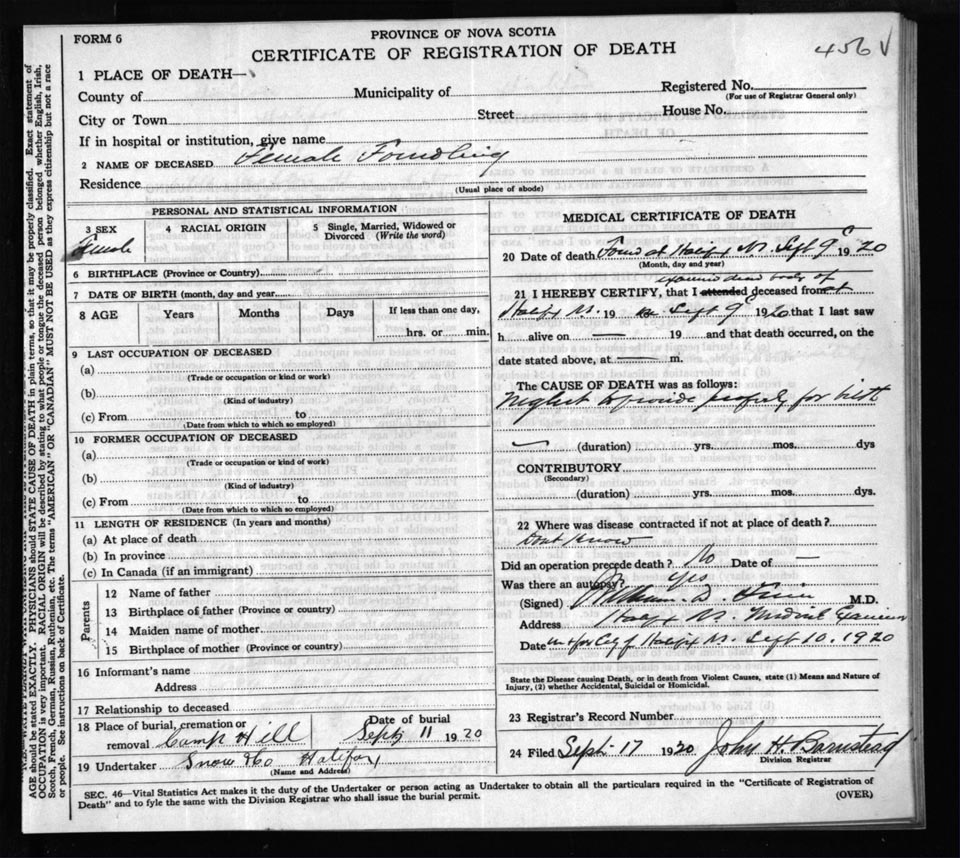 FORM 6
PROVINCE OF NOVA SCOTIA
CERTIFICATE OF REGISTRATION OF DEATH
456 V
1 PLACE OF DEATH—
County of
Municipality of
Registered No.
(For use of Registrar General only)
City or Town
Street
House No.
If in hospital or institution, give name
2 NAME OF DECEASED Female Foundling
Residence
(Usual place of abode)
PERSONAL AND STATISTICAL INFORMATION
3 SEX
Female
4 RACIAL ORIGIN
5 Single, Married, Widowed or
Divorced (Write the word)
6 BIRTHPLACE (Province or Country)
7 DATE OF BIRTH (month, day and year
8 AGE
Years
Months
Days
If less than one day,
hrs. or min.
9 LAST OCCUPATION OF DECEASED
(a)
(Trade or occupation or kind or work)
(b)
(Kind of industry)
(c) From to
(Date from which to which so employed)
10 FORMER OCCUPATION OF DECEASED
(a)
(Trade or occupation or kind of work)
(b)
(Kind of industry)
(c) From to
(Date from which to which so employed)
11 LENGTH OF RESIDENCE (In years and months)
(a) At place of death
(b) In province
(c) In Canada (if an immigrant)
Parents
12 Name of father
13 Birthplace of father (Province or country)
14 Maiden name of mother
15 Birthplace of mother (Province or country)
16 Informant's name
Address
17 Relationship to deceased
18 Place of burial, cremation or
removal Camp Hill
Date of burial
Sept 11 1920
19 Undertaker Snow & Co Halifax
(Name and Address)
MEDICAL CERTIFICATE OF DEATH
20 Date of death Found at Halifax Sept 9 1920
(Month, day and year)
21 I HEREBY CERTIFY, that I attended deceased from
dead body of
Sept 9 1920 that I last saw
h alive on 19 and that death occurred, on the
date stated above, at m.
The CAUSE OF DEATH was as follows:
Neglect to provide properly for birth
(duration) yrs. mos. dys
CONTRIBUTORY
(Secondary)
(duration) yrs. mos. dys.
22 Where was disease contracted if not at place of death?
Dont know
Did an operation precede death? No Date of —
Was there an autopsy? Yes
(Signed) M.D.
Address Medical Examiner
Date City of Halifax Sept 10. 1920
State the Disease causing Death, or in death from Violent Causes, state (1) Means and Nature of
Injury, (2) whether Accidental, Suicidal or Homicidal.
23 Registrar's Record Number
24 Filed Sept 17 1920 John H. Barnstead
Division Registrar
SEC. 46—Vital Statistics Act makes it the duty of the Undertaker or person acting as Undertaker to obtain all the particulars required in the "Certificate of Registration of
Death" and to fyle the same with the Division Registrar who shall issue the burial permit.
(OVER)
AGE should be stated EXACTLY. PHYSICIANS should STATE CAUSE OF DEATH in plain terms, so that it may be properly classified. Exact statement of
OCCUPATION is very important. RACIAL ORIGIN will be described by stating to what people or tongue the deceased person belonged whether English, Irish,
Scotch, French, German, Russian, Ruthenian, etc. The terms "AMERICAN" OR "CANADIAN" MUST NOT BE USED as they express citizenship but not a race
or people. See instructions on back of Certificate.